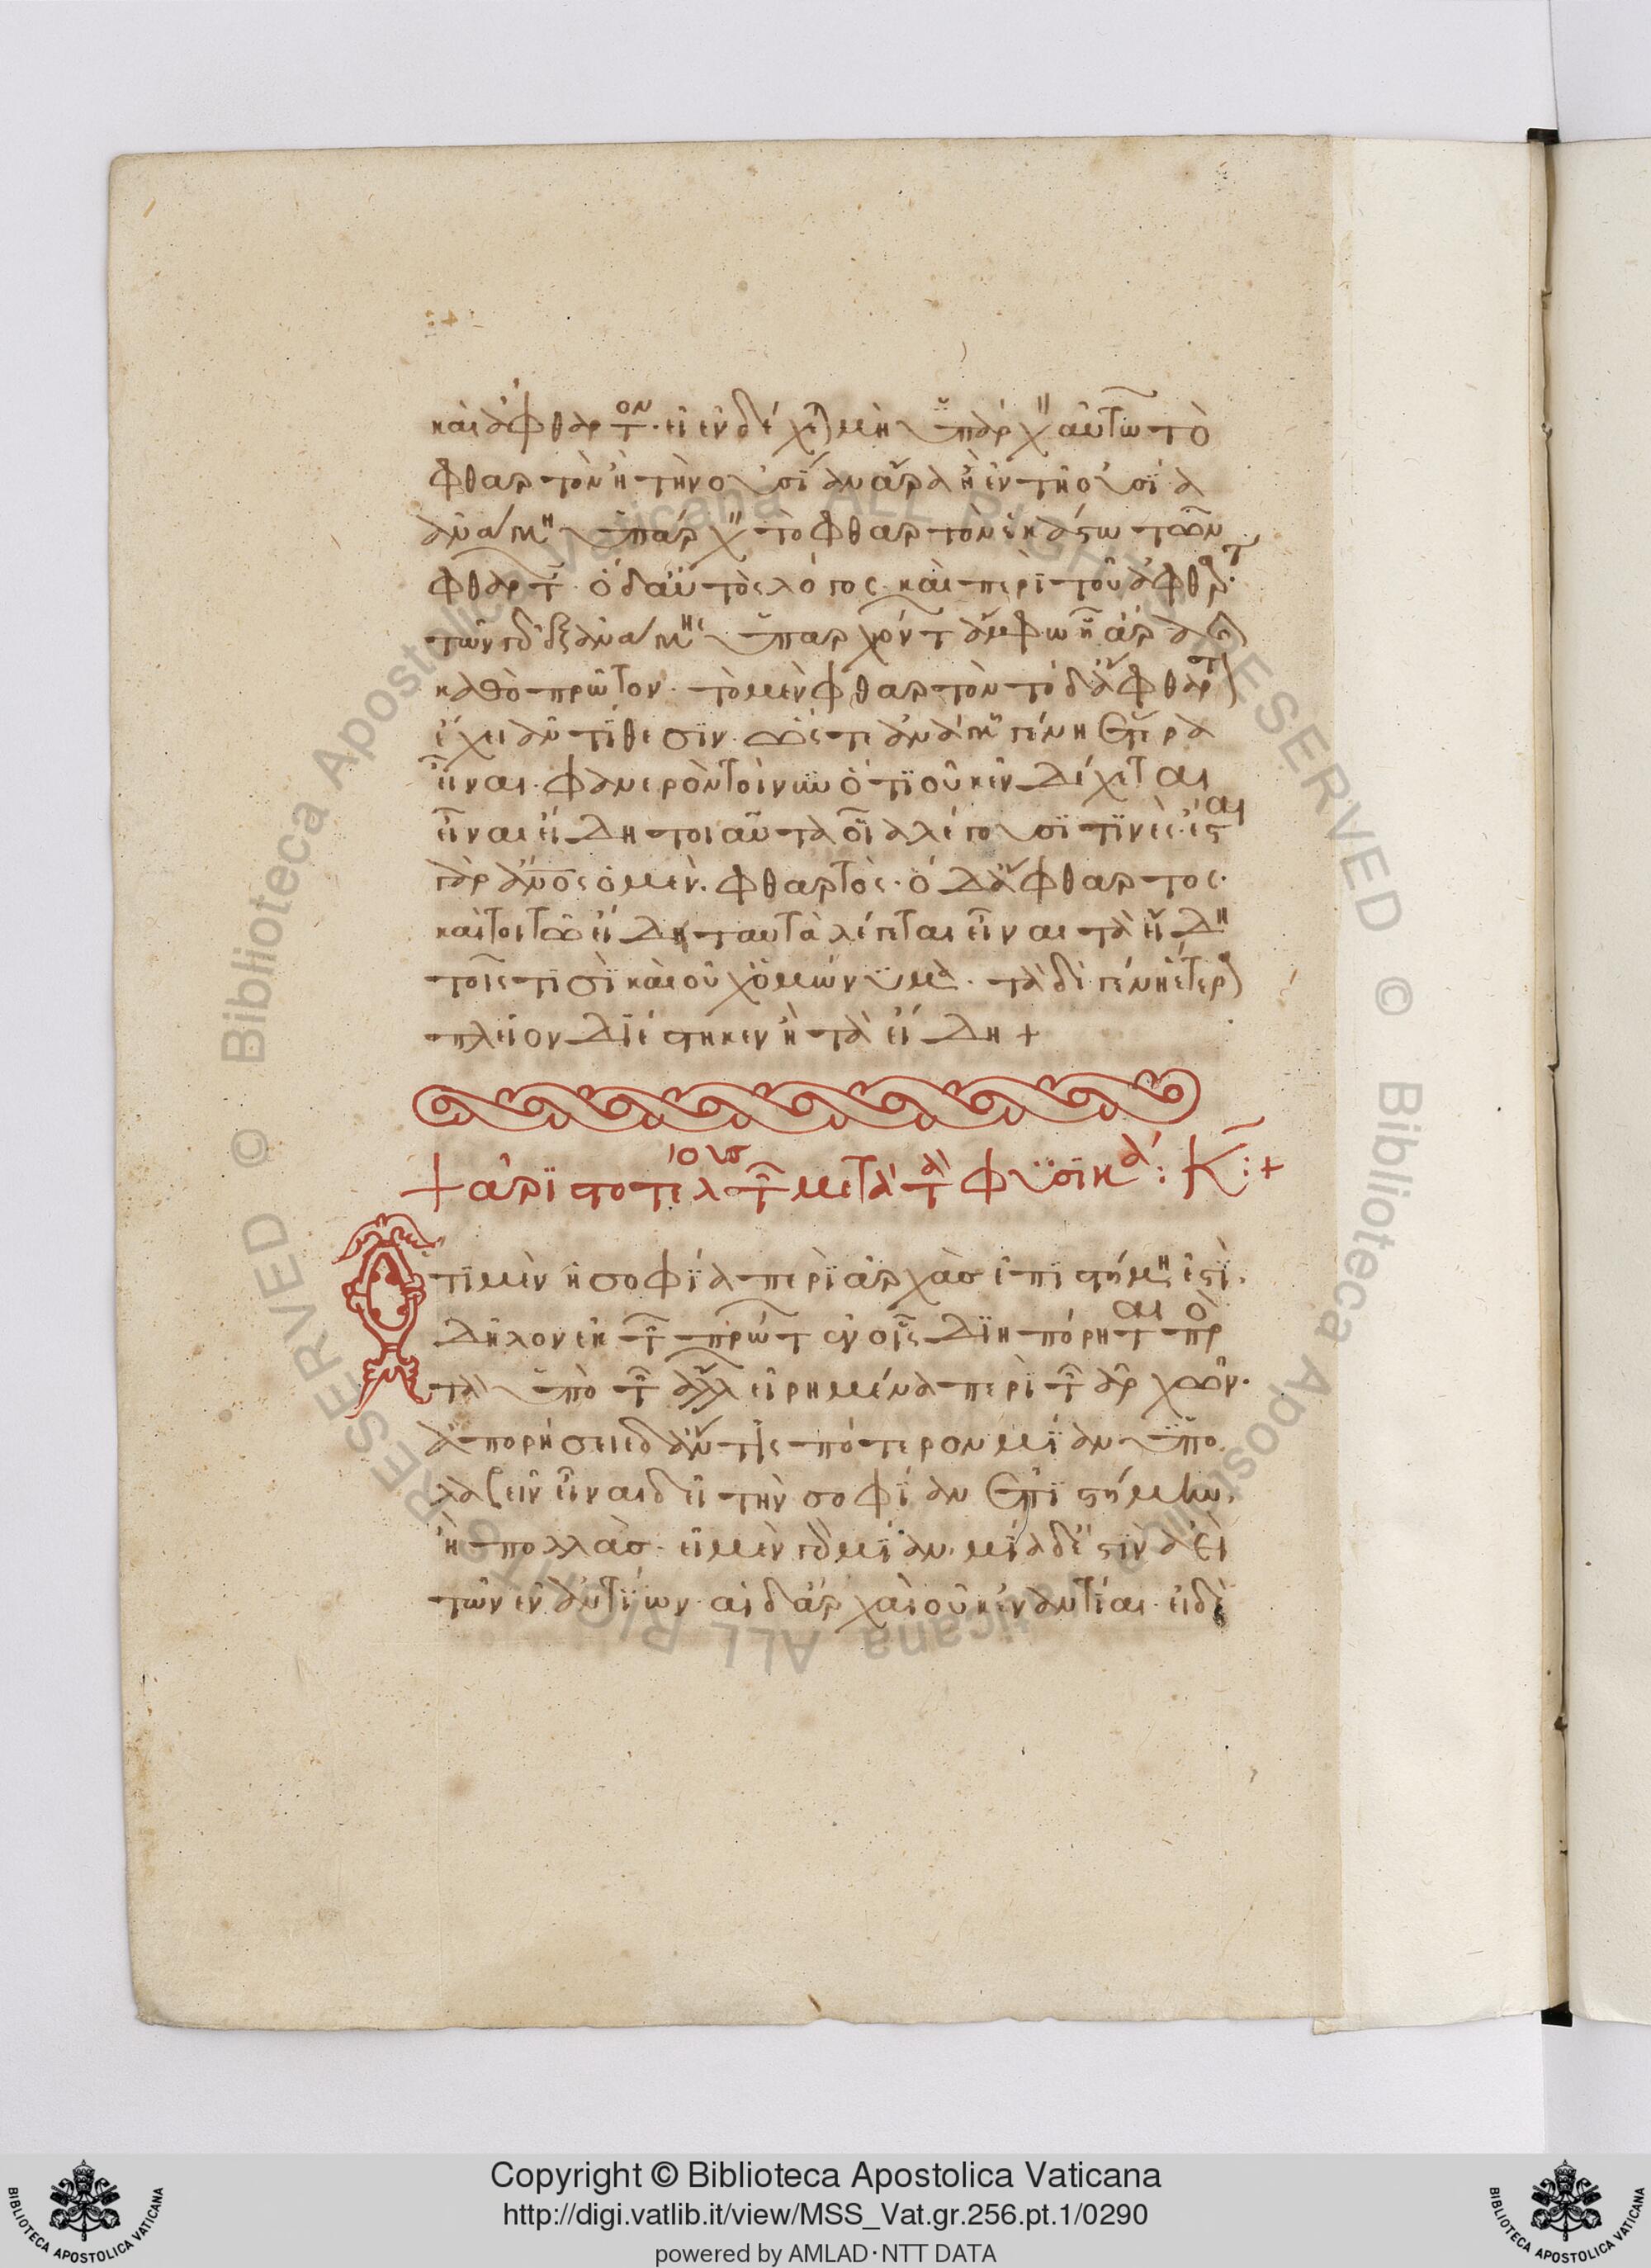 καὶ ἄφθαρτον· εἰ ἐνδέχεται μὴ ὑπάρχειν αὐτῶ τὸ
φθαρτὸν ἢ τὴν οὐσίαν ἄρα ἢ ἐν τῆ οὐσία
ἀνάγκη ὑπάρχειν τὸ φθαρτὸν ἑκάστω τῶν
φθαρτῶν· ὁ δ' αὐτὸς λόγος καὶ περὶ τοῦ ἀφθάρτ
τῶν γὰρ ἐξ ἀνάγκης ὑπαρχόντων ἄμφω ἧ ἄρα
καθὸ πρῶτον· τὸ μὲν φθαρτὸν τὸ δ' ἄφθαρτον
ἔχει ἀντίθεσιν· ὥστε ἀνάγκη γένη ἕτερα
εἶναι· φανερὸν τοίνυν ὅτι οὐκ ἐνδέχεται
εἶναι εἴδη τοιαῦτα οἷα λέγουσί τινες· ἔσται
γὰρ ἄνος ὁ μὲν φθαρτὸς· ὁ δ' ἄφθαρτος·
καίτοι τῶ εἴδη ταυτὰ λέγεται εἶναι τὰ εἴδη
τοῖς τισὶ καὶ οὐχ ὁμώνυμα· τὰ δὲ γένη ἕτερα
πλεῖον διέστηκεν ἢ τὰ εἴδη +
+ ἀριστοτέλους τῶν μετὰ τὰ φυσικά: Κ:+
Ὅτι μὲν ἡ σοφία περὶ ἀρχὰς ἐπιστήμη ἐστὶ·
δῆλον ἐκ τῶν πρώτων ἐν οἷς διηπόρηται πρὸ
τὰ ὑπὸ τῶν ἄλλων εἰρημένα περὶ τῶν ἀρχῶν·
ἀπορήσειε δ' ἄν τις πότερον μίαν ὑπο
λαβεῖν εἶναι δεῖ τὴν σοφίαν ἐπιστήμην·
ἢ πολλάσ· εἰ μὲν γὰρ μίαν· μία δ' ἐστὶν ἀεὶ
τῶν ἐναντίων· αἱ δ' ἀρχαὶ οὐκ ἐναντίαι· εἰ δὲ
Copyright © Biblioteca Apostolica Vaticana
http://digi.vatlib.it/view/MSS_Vat.gr.256.pt.1/0290
powered by AMLAD·NTT DATA